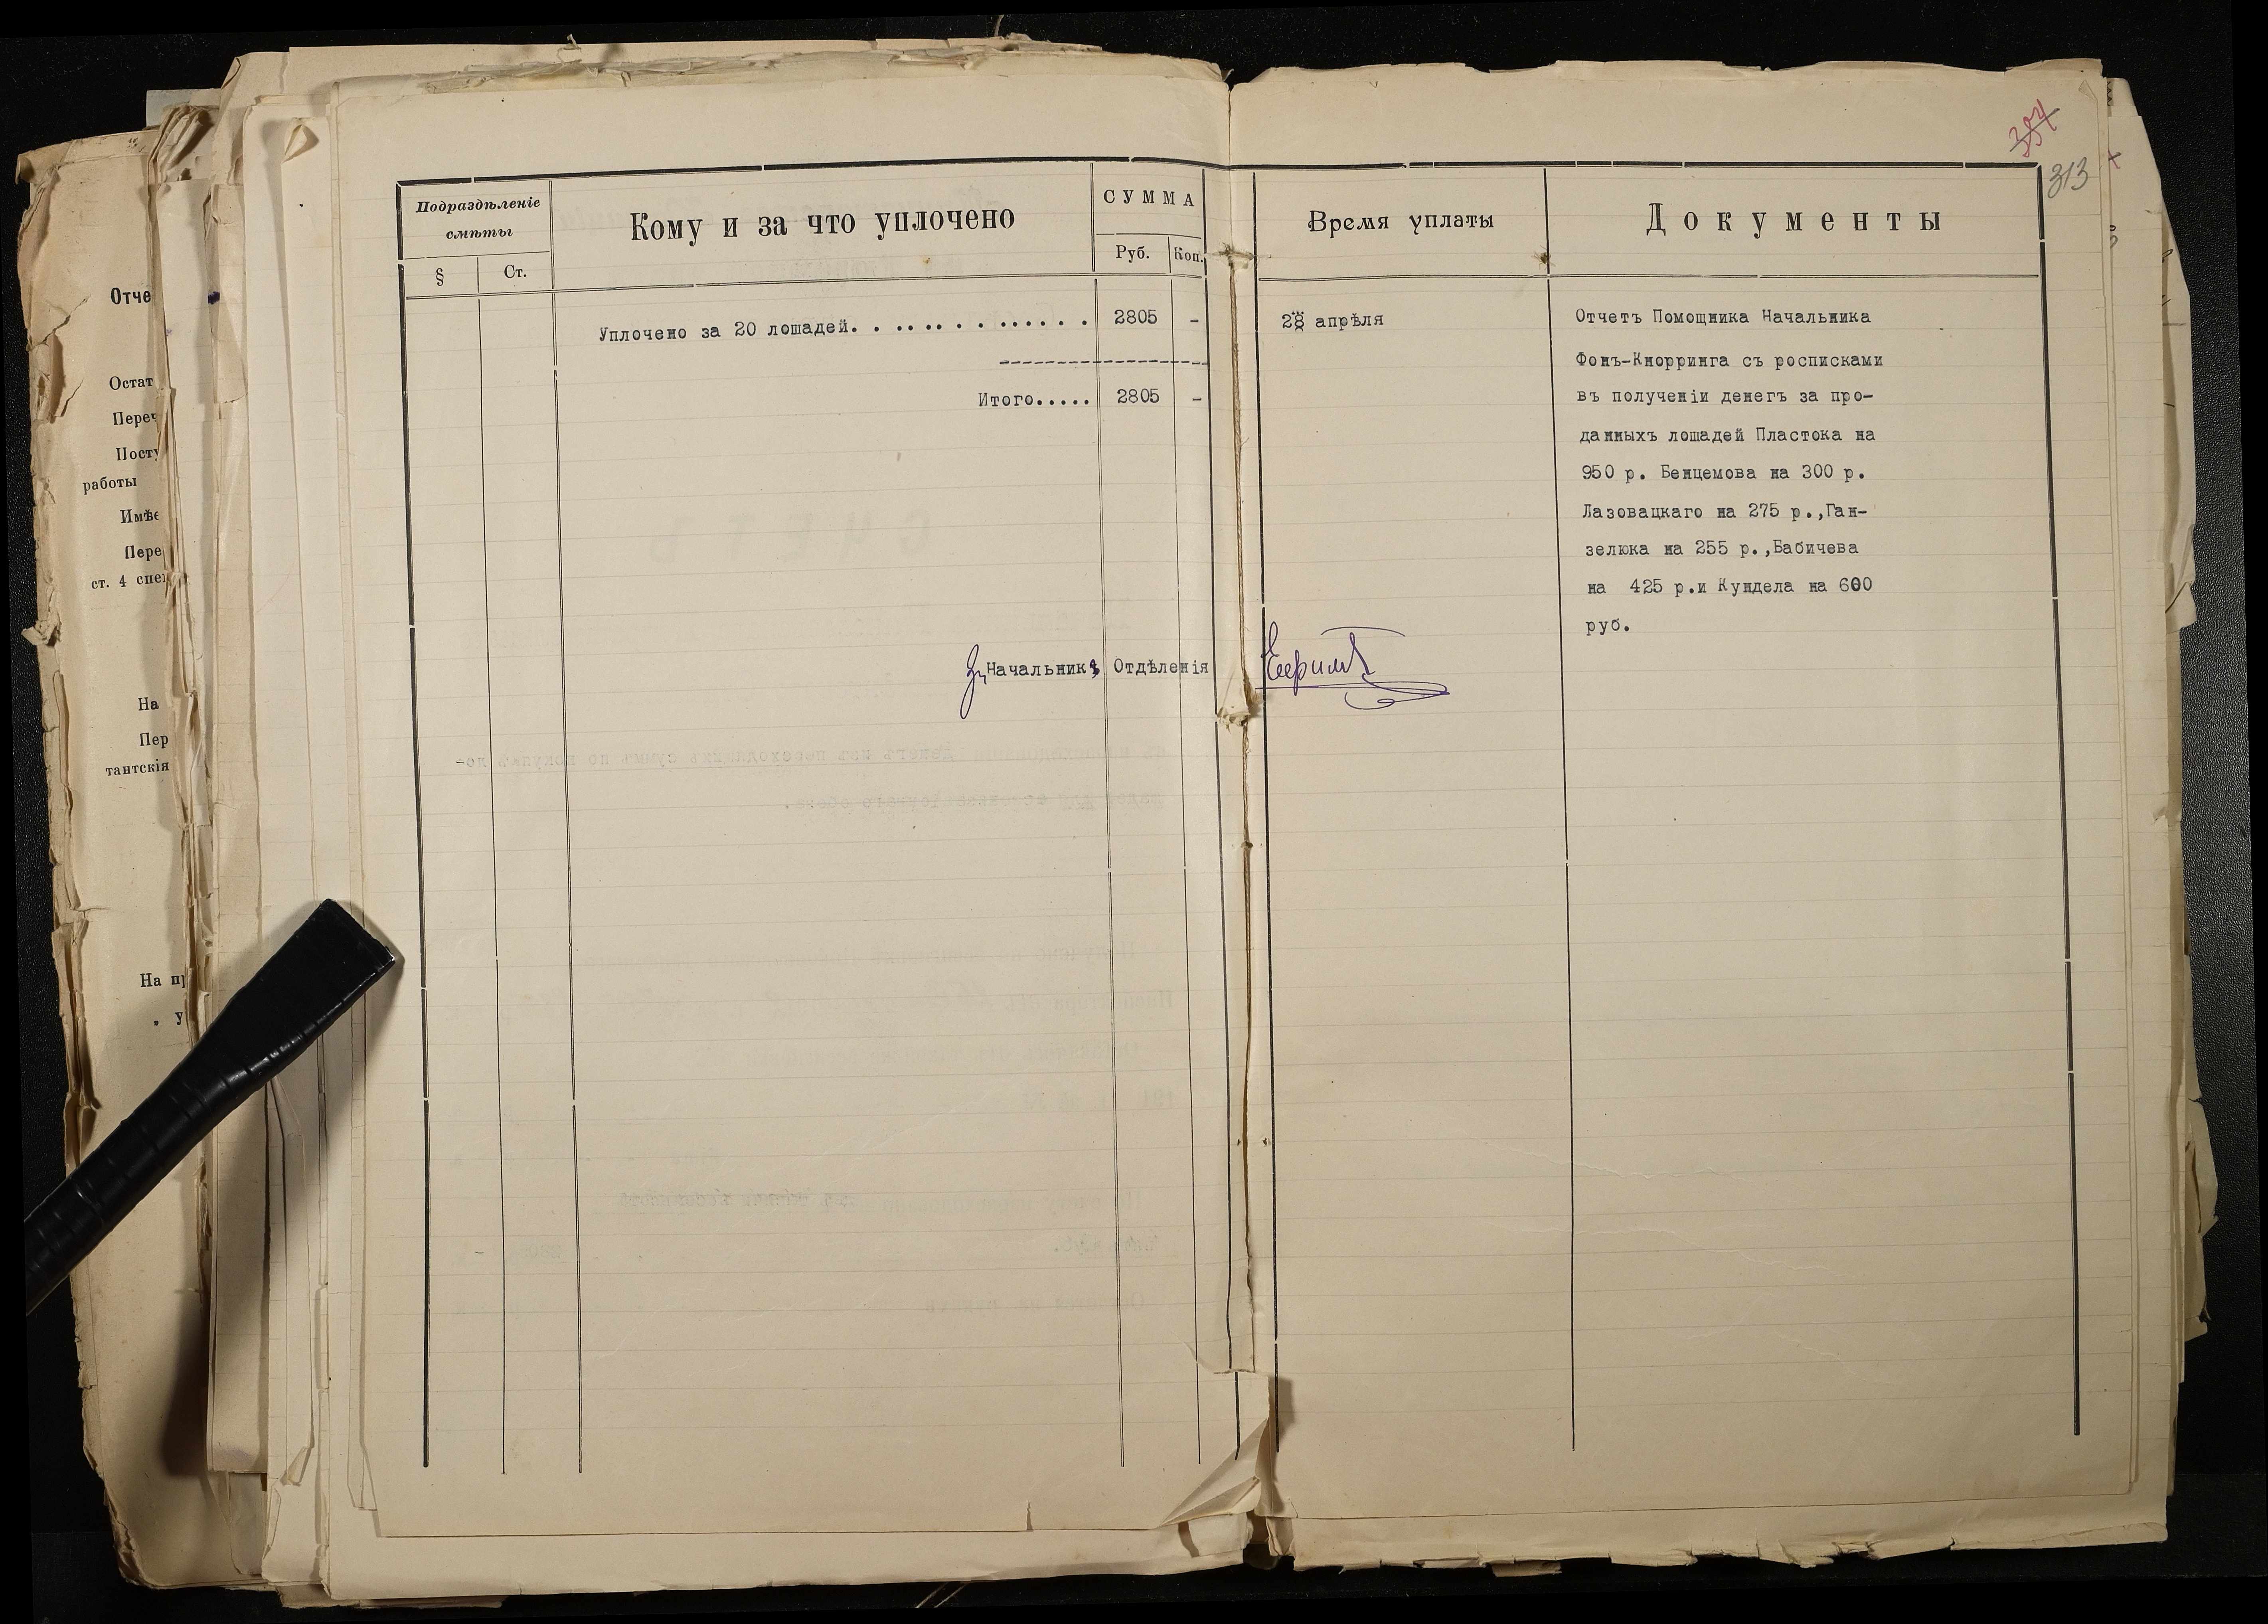 Отче
Остат
Переч
Посту
работы
Имѣе
Пере
ст. 4 спец
На
Пер
тантскія
На пр
„ у
384
313
Подраздѣленіе
смѣты
§
Ст.
Кому и за что уплочено
СУММА
Руб.
Коп.
Время уплаты
Документы
Уплочено за 20 лошадей. . .. ... . . ...... 2805 -
Итого..... 2805 -
28 апрѣля
Отчетъ Помощника Начальника
Фонъ-Кнорринга съ росписками
въ полученіи денегъ за про-
данныхъ лошадей Пластока на
950 р. Бенцемова на 300 р.
Лазовацкаго на 275 р.,Ган-
зелюка на 255 р.,Бабичева
на 425 р.и Кундела на 600
руб.
За Начальника Отдѣленія